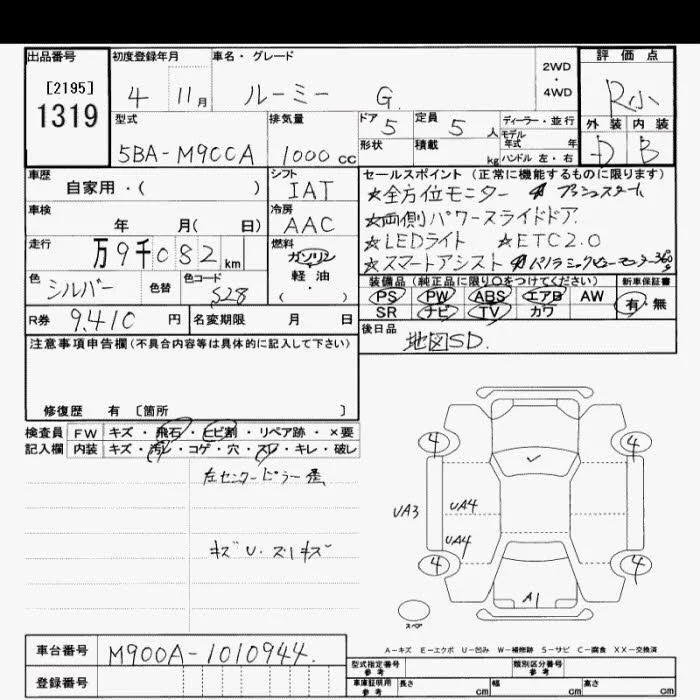 出品番号 初度登録年月 車名・グレード 2WD ・ 4WD 評価点
[2195]
1319
4 11月 ルーミー G. R小
型式 排気量 ドア 5 定員 5人 ディーラー・並行 外装 内装
モデル年式 年
5BA-M900A 1000cc 形状 積載 kg ハンドル 左・右 D B
車歴 シフト セールスポイント(正常に機能するものに限ります)
自家用・( ) IAT ☆全方位モニター
車検 冷房 ☆両側パワースライドドア
年 月( 日) AAC ☆LEDライト ☆ETC2.0
走行 燃料 ☆スマートアシスト
万9千082km ガソリン 軽・油 ・( )
色 シルバー 色替 色コード S28
装備品(純正品に限り○をつけてください) 新車保証書
PS PW ABS エアB AW 有・無
SR ナビ TV カワ
R券 9,410円 名変期限 月 日
後日品 地図SD.
注意事項申告欄(不具合内容等は具体的に記入して下さい)
修復歴 有 〔箇所 〕
検査員 FW キズ・飛石・ヒビ割・リペア跡・×要
記入欄 内装 キズ・汚レ・コゲ・穴・スレ・キレ・破レ
左センターピラー
キズU・スリキズ
4 4
UA3 UA4
UA4
4 4
A1
スペア
A-キズ E-エクボ U-凹み W-補修跡 S-サビ C-腐食 XX-交換済
車台番号 M900A-1010944.
登録番号
型式指定番号 参考 類別区分番号 参考
車庫証明用 参考 長さ cm 幅 cm 高さ cm